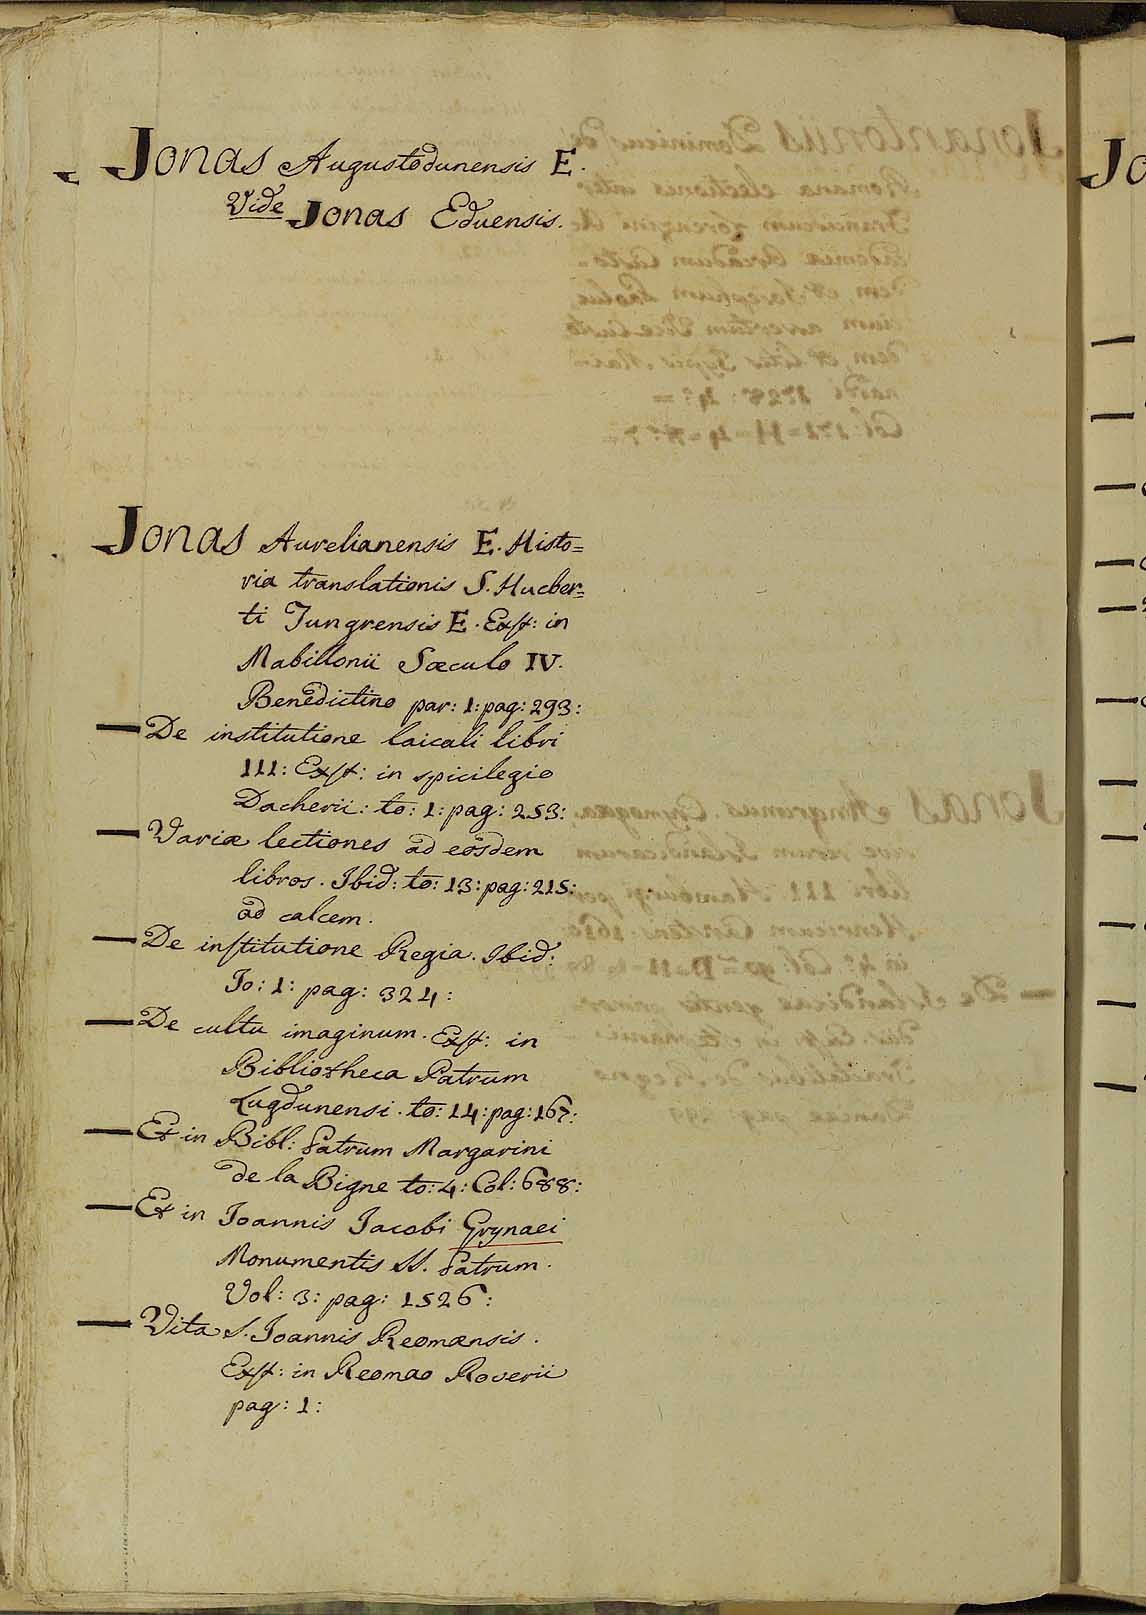 Jonas Augustodunensis E.
Vide Jonas Eduensis.
Jonas Aurelianensis E. Histo=
ria translationis S. Hucber=
ti Tungrensis E. Exst: in
Mabillonii Sæculo IV.
Benedictino par: 1: pag: 293:
— De institutione laicali libri
III: Exst: in spicilegio
Dacherii: to: 1: pag: 253:
— Variæ lectiones ad eosdem
libros. Ibid: to: 13: pag: 215:
ad calcem.
— De institutione Regia. Ibid:
To: 1: pag: 324:
— De cultu imaginum. Exst: in
Bibliotheca Patrum
Lugdunensi. to: 14: pag: 167:
— Et in Bibl: Patrum Margarini
de la Bigne to: 4: Col: 688:
— Et in Joannis Jacobi Grynaei
Monumentis SS. Patrum.
Vol: 3: pag: 1526:
— Vita S. Joannis Reomænsis.
Exst: in Reomao Roverii
pag: 1: